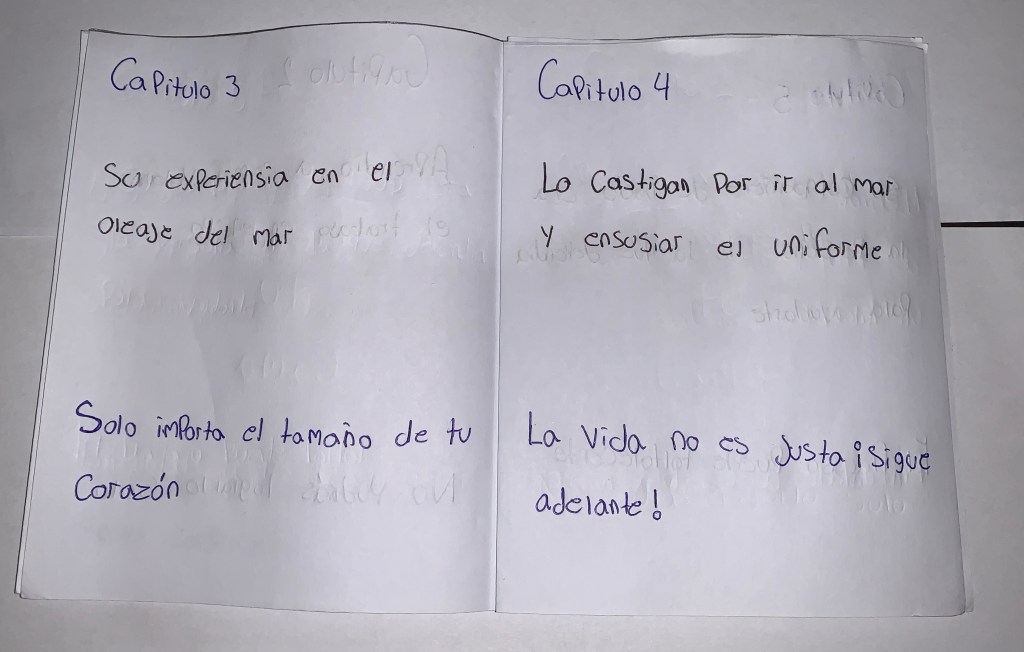 Capitulo 3
Su experiensia en el
oleaje del mar
Solo importa el tamaño de tu
Corazón
Capitulo 4
Lo Castigan Por ir al mar
y ensusiar el uniforme
La Vida no es Justa ¡Sigue
adelante!